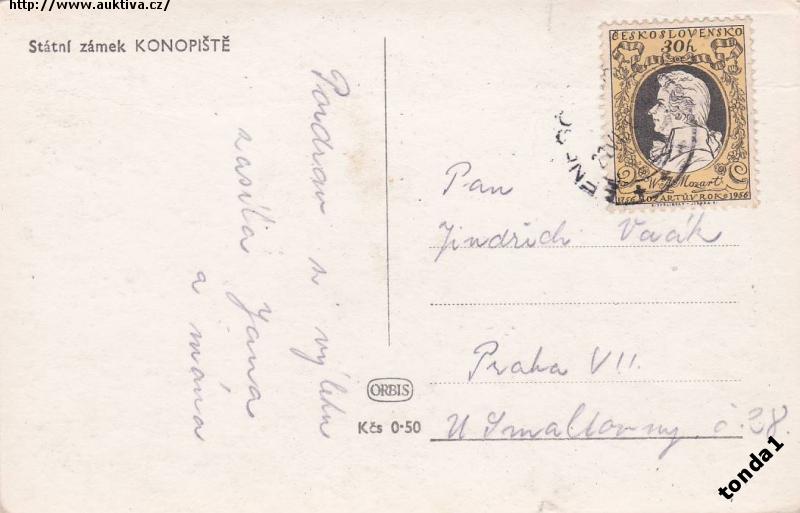 http://www.auktiva.cz/
Státní zámek KONOPIŠTĚ
Pozdrav z výletu
zasílá Jána
a máma
ORBIS
Kčs 0·50
ČESKOSLOVENSKO
30h
W. A. Mozart
1756 MOZARTŮV ROK 1956
Pan
Jindřich
Praha VII.
U Smaltovny č. 38.
tonda1